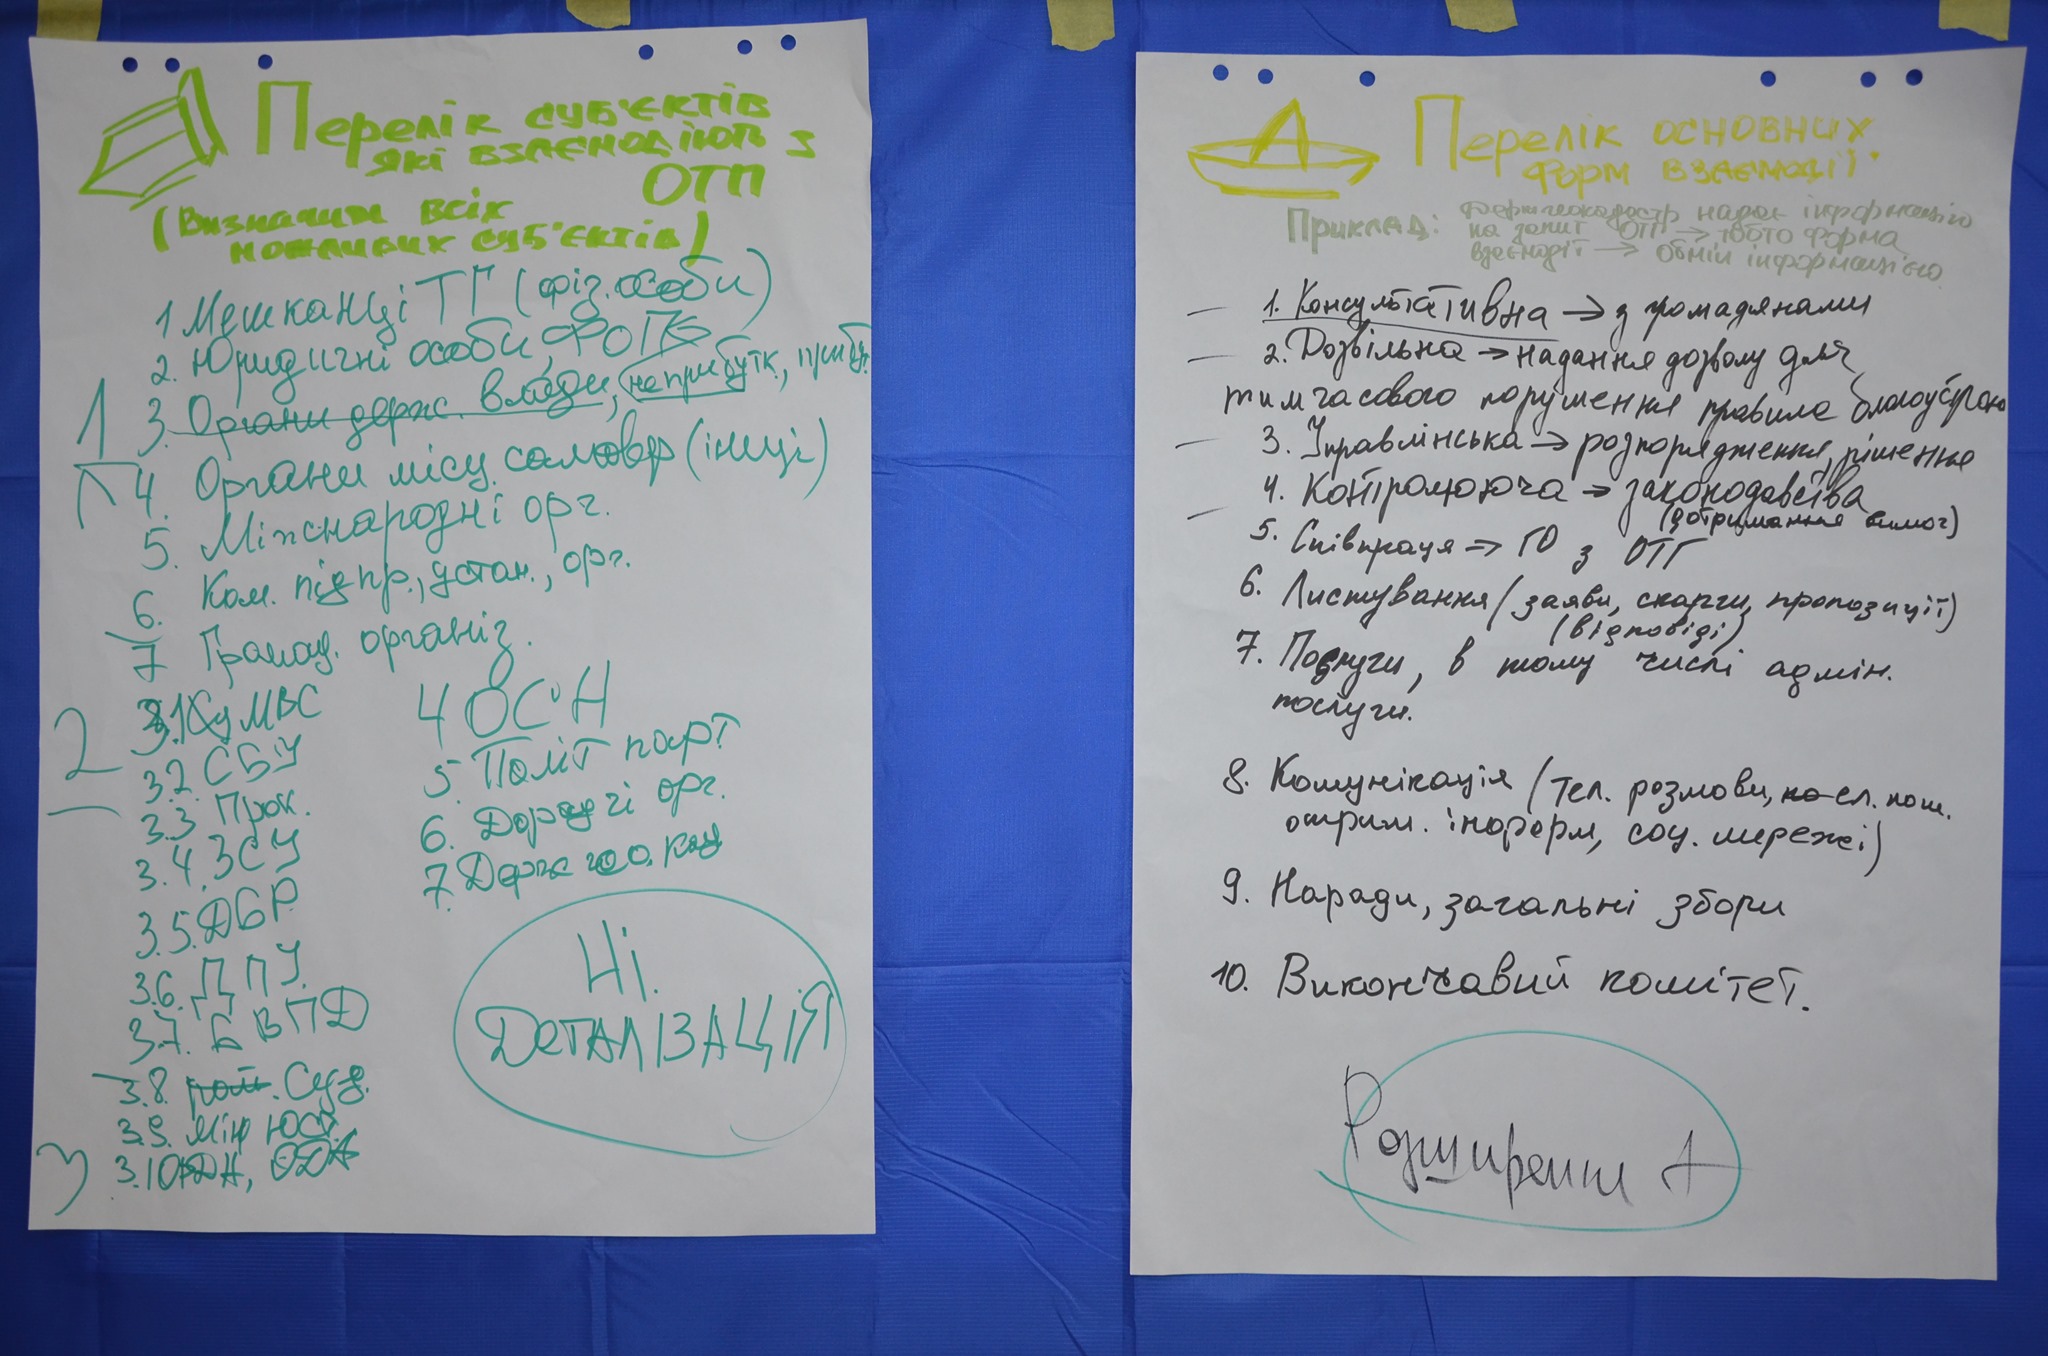 Перелік суб'єктів
які взаємодіють з
ОТП
(Визначити всіх
можливих суб'єктів)
1 Мешканці ТГ (фіз. особи)
2. Юридичні особи, ФОПи
1
3. Органи держ. влади, неприбутк., прибут.
4. Органи місц. самовр (інші)
5. Міжнародні орг.
6. Ком. підпр., устан., орг.
7 Громад. організ.
2
3.1 МВС
3.2. СБУ
3.3 Прок.
3.4. ЗСУ
3.5. ДБР
3.6.
3.7. БВПД
3.8. Суд.
3.9. Мін юст.
3
3.10 РДА, ОДА
4 ОСН
5. Політ парт
6. Дорадчі орг.
7. Держ
Ні.
Деталізація
Перелік основних
форм взаємодії
Приклад: Держгеокадастр надає інформацію
на запит ОТГ → тобто форма
взаємодії → обмін інформацією
1. Консультативна → з громадянами
2. Дозвільна → надання дозволу для
тимчасового порушення правила благоустрою
3. Управлінська → розпорядження, рішення
4. Контролююча → законодавства
(дотримання вимог)
5. Співпраця → ГО з ОТГ
6. Листування (заяви, скарги, пропозиції)
(відповіді)
7. Послуги, в тому числі адмін.
послуги.
8. Комунікація (тел. розмови, ел. пош.
отрим. інформ, соц. мережі)
9. Наради, загальні збори
10. Виконавчий комітет.
Розширення